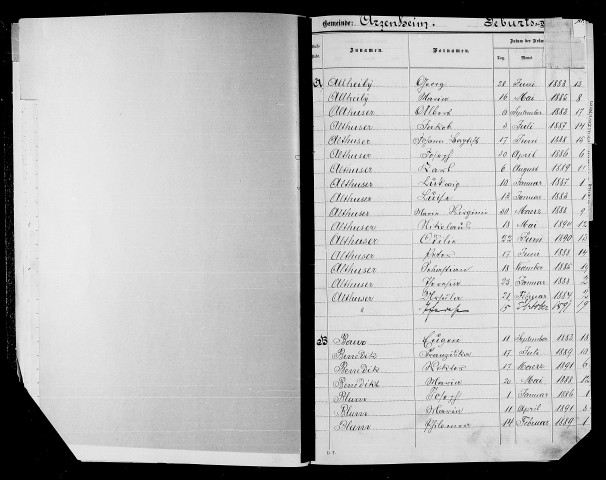 Gemeinde: Arzenheim. Geburts-
Zunamen. Vornamen. Datum der
Tag Monat
A Altheily Georg 28 Juni 1883 13
Altheily Maria 16 Mai 1885 8
Althuser Albert 9 September 1883 17
Althuser Jakob 3 Juli 1887 14
Althuser Johann Baptist 17 Juni 1888 15
Althuser Josef 20 April 1886 6
Althuser Karl 6 August 1889 11
Althuser Ludwig 10 Januar 1887 1
Althuser Luise 12 Januar 1883 1
Althuser Maria Virginie 30 Maerz 1883 9
Althuser Nikolaus 18 Mai 1890 12
Althuser Odilia 22 Juni 1890 13
Althuser Peter 17 Juni 1888 14
Althuser Sebastian 18 November 1885 19
Althuser Theresia 23 Januar 1883 2
Althuser 21 Februar 1884
" 15 Oktober 1891 19
B Baur Eugen 11 September 1883 18
Benedik Franziska 17 Juli 1889 10
Benedik Viktor 17 Maerz 1891 6
Benedikt Maria 20 Mai 1888 12
Blum Josef 1 Januar 1886 1
Blum Maria 11 April 1891 8
Blum Philomena 14 Februar 1889